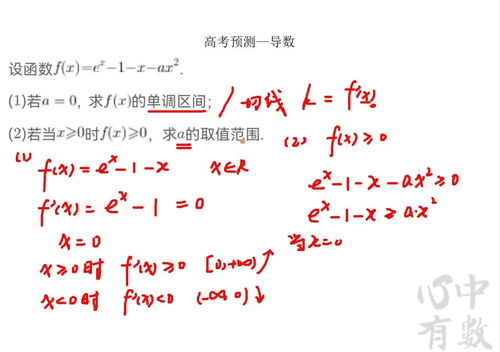 高考预测—导数
设函数f(x)=eˣ−1−x−ax².
(1)若a=0，求f(x)的单调区间； / 切线 k = f'(x)
(2)若当x⩾0时f(x)⩾0，求a的取值范围.
(1) f(x) = eˣ-1-x x∈R
f'(x) = eˣ-1 = 0
x = 0
x≥0时 f'(x)≥0 [0,+∞) ↗
x<0时 f'(x)<0 (-∞,0) ↓
(2) f(x)≥0
eˣ-1-x-ax²≥0
eˣ-1-x≥a·x²
当x=0
心中有数